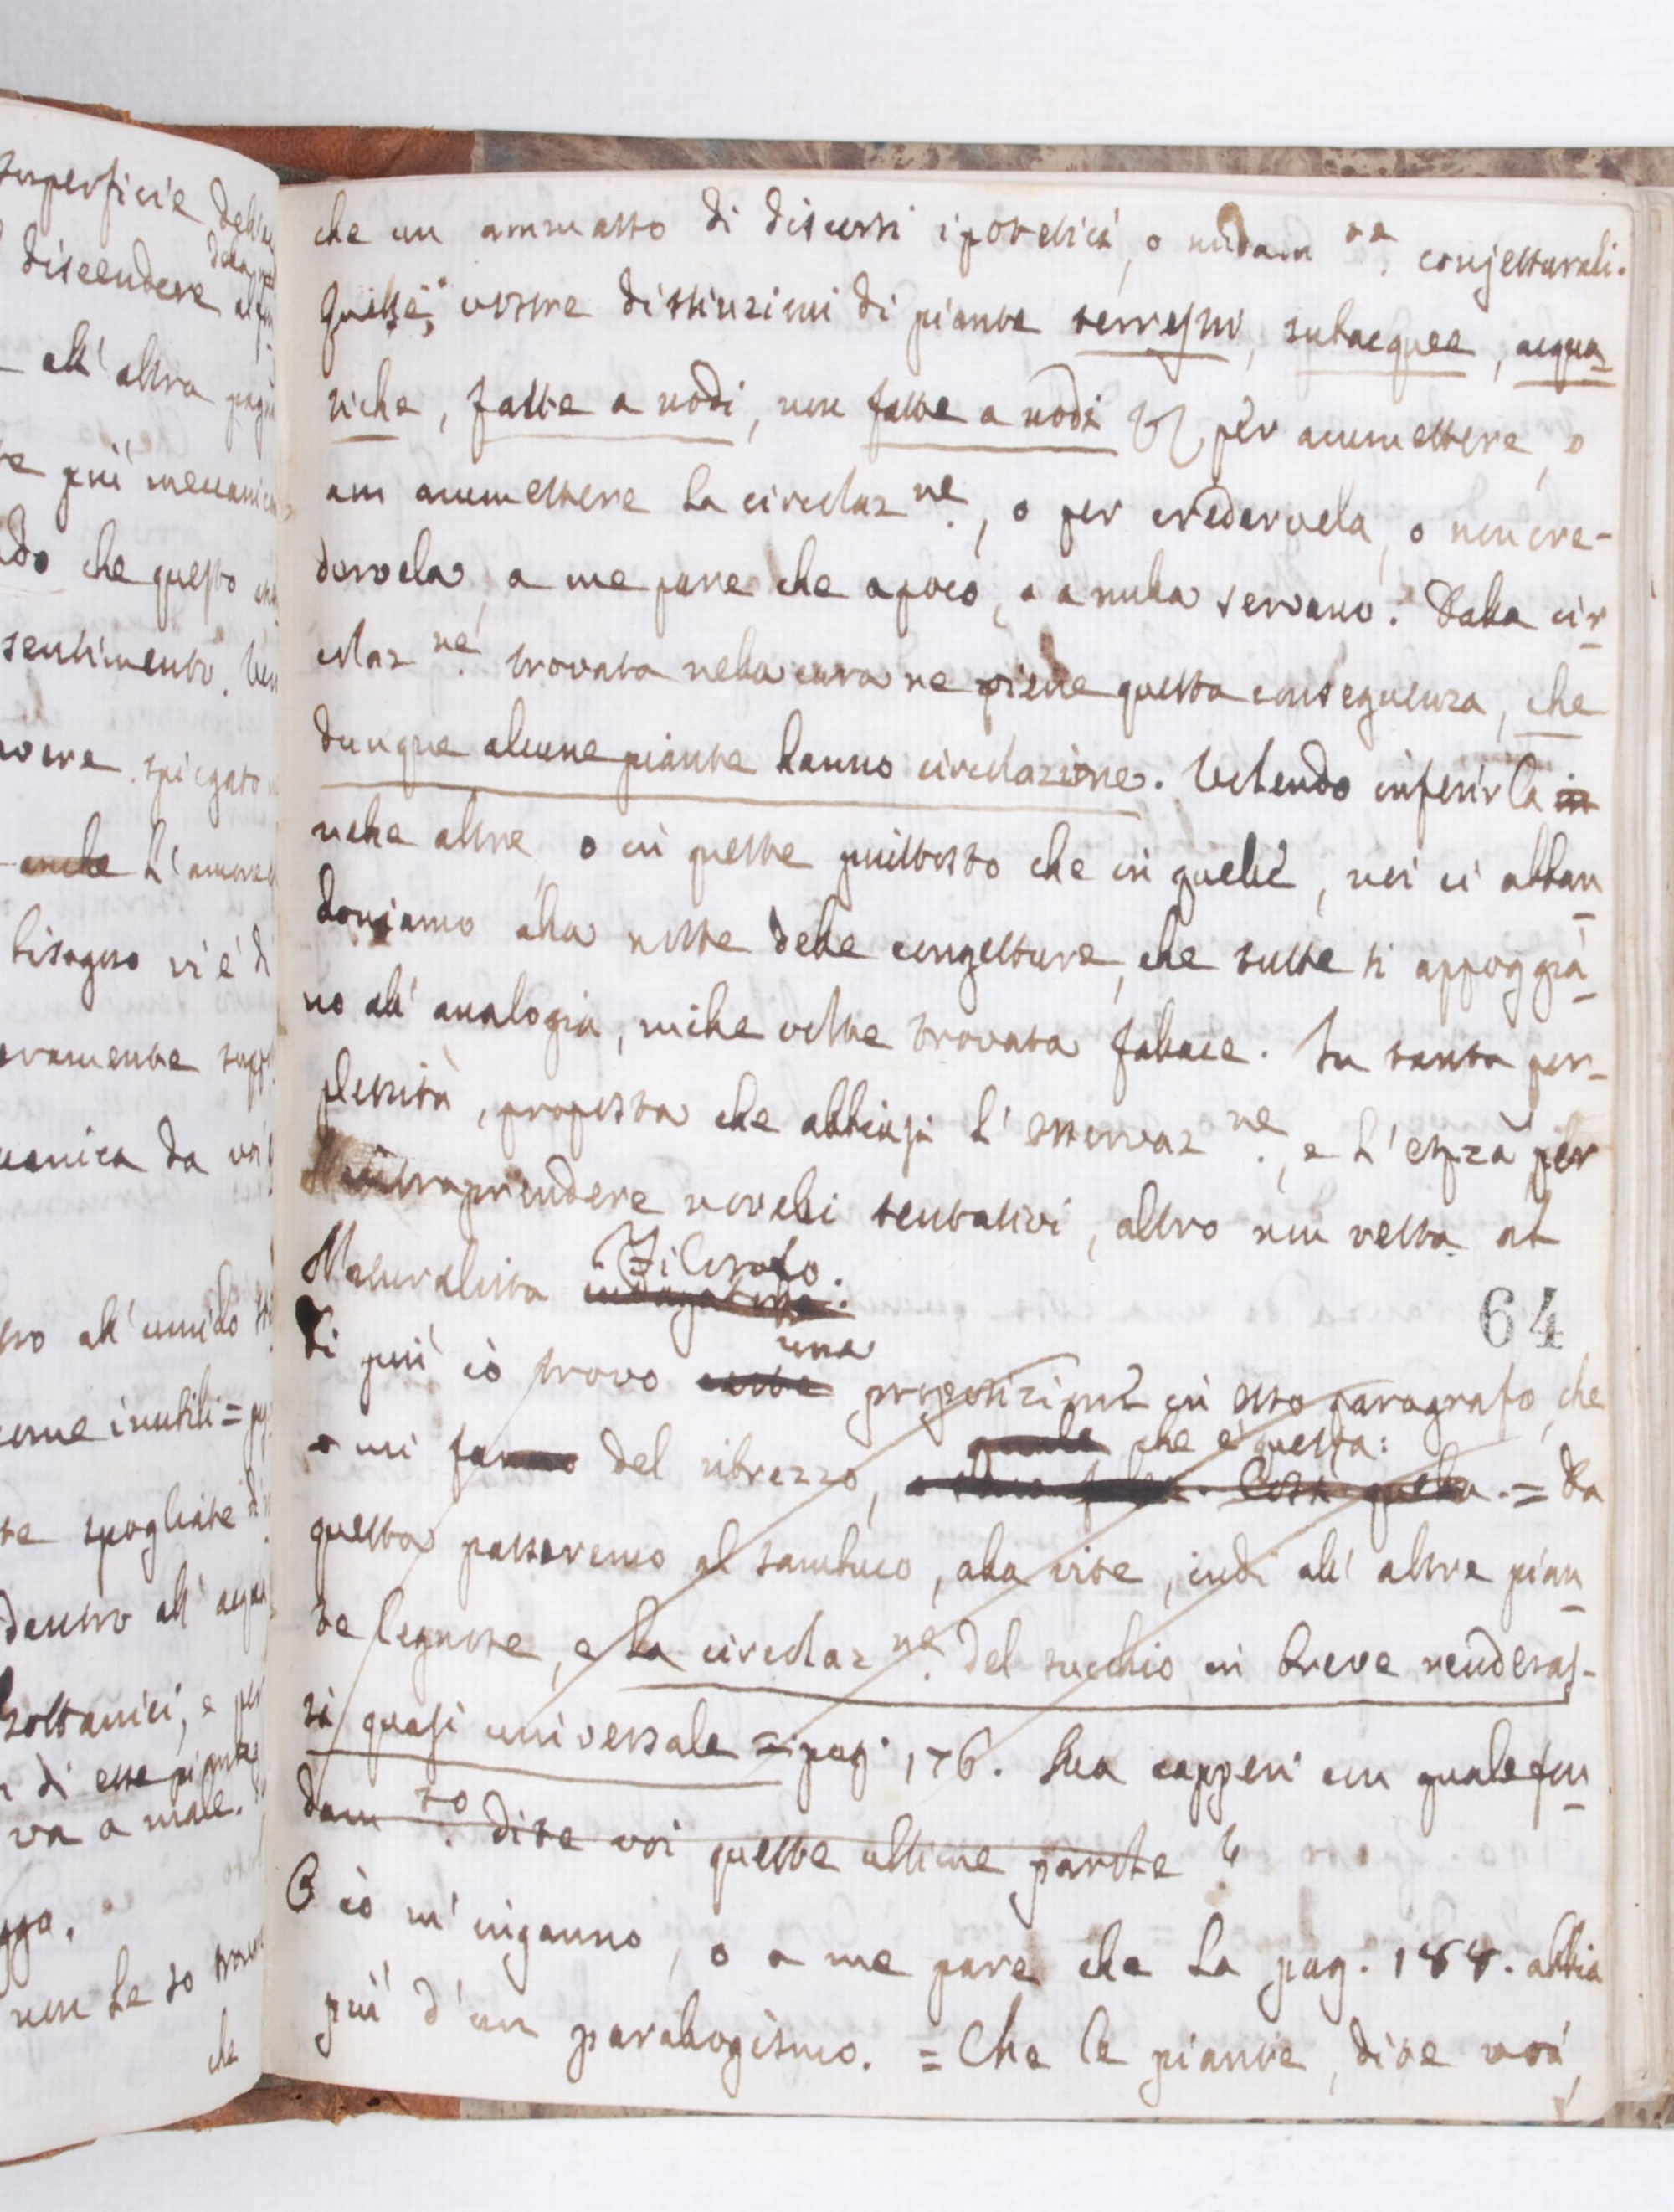 superficie
discendere
all' altra
più meccanica
che questo
sentimento.
spiegato
anche l'
bisogno vi è di
da voi
all' umido
come inutili =
te spogliate
dentro all'
bottanici, e per
di esse piante
va a male.
non le so
che
che un ammasso di discorsi ipotetici, o nudam te. conjetturali.
Queste vostre distinzioni di piante terrestri, subacquee, acqua-
tiche, fatte a nodi, non fatte a nodi per ammettere, o
non ammettere la circolaz ne., o per credervela, o non cre-
dervela, a me pare che a poco, o a nulla servano. Dalla cir-
colaz ne. trovata nella cara ne viene questa conseguenza, che
dunque alcune piante hanno circolazione. Volendo inferirla in
nelle altre, o in queste piuttosto che in quelle, noi ci abban-
doniamo alla notte delle congetture, che tutte si appoggia-
no all' analogia, mille volte trovata fallace. In tanta per-
plessità, proposta che abbiasi l' osservaz ne., e l' espza per
intraprendere novelli tentativi, altro non resta al
Naturalista indagatore. Filosofo.
64
Di più iò trovo una proposizione in esso paragrafo, che
mi fa del ribrezzo, che è questa: = Da
questa passeremo al sambuco, alla vite, indi all' altre pian-
te legnose, e la circolaz ne. del succhio in breve renderas-
si quasi universale = pag. 176. Ma capperi con quale fon-
dam to. dite voi queste ultime parole?
O iò m' inganno, o a me pare che la pag. 188. abbia
più d' un paralogismo. = Che le piante, dite voi,